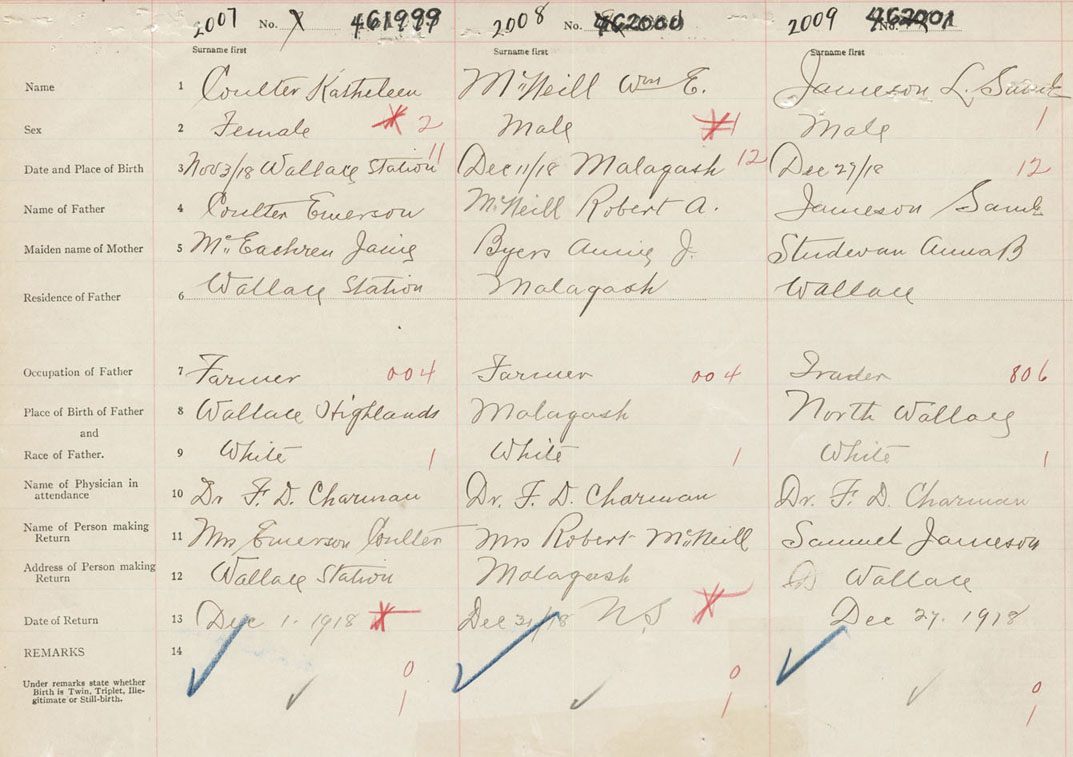 2007 No. X 461999 2008 No. 462000 2009 No. 462001
Surname first Surname first Surname first
Name 1 Coulter Katheleen McNeill Wm E. Jameson L.
Sex 2 Female 2 Male 1 Male 1
Date and Place of Birth 3 Nov 3/18 Wallace Station 11 Dec 11/18 Malagash 12 Dec 27/18 12
Name of Father 4 Coulter Emerson McNeill Robert A. Jameson Saml
Maiden name of Mother 5 McEachren Janie Byers Annie J. Studevan Anna B
Residence of Father 6 Wallace Station Malagash Wallace
Occupation of Father 7 Farmer 004 Farmer 004 Trader 806
Place of Birth of Father 8 Wallace Highlands Malagash North Wallace
and
Race of Father. 9 White 1 White 1 White 1
Name of Physician in
attendance 10 Dr F. D. Charman Dr. F. D. Charman Dr. F. D. Charman
Name of Person making
Return 11 Mrs Emerson Coulter Mrs Robert McNeill Samuel Jameson
Address of Person making
Return 12 Wallace Station Malagash Wallace
Date of Return 13 Dec 1. 1918 Dec 31/18 N.S Dec 27. 1918
REMARKS 14
Under remarks state whether
Birth is Twin, Triplet, Ille-
gitimate or Still-birth.
0 0 0
1 1 1